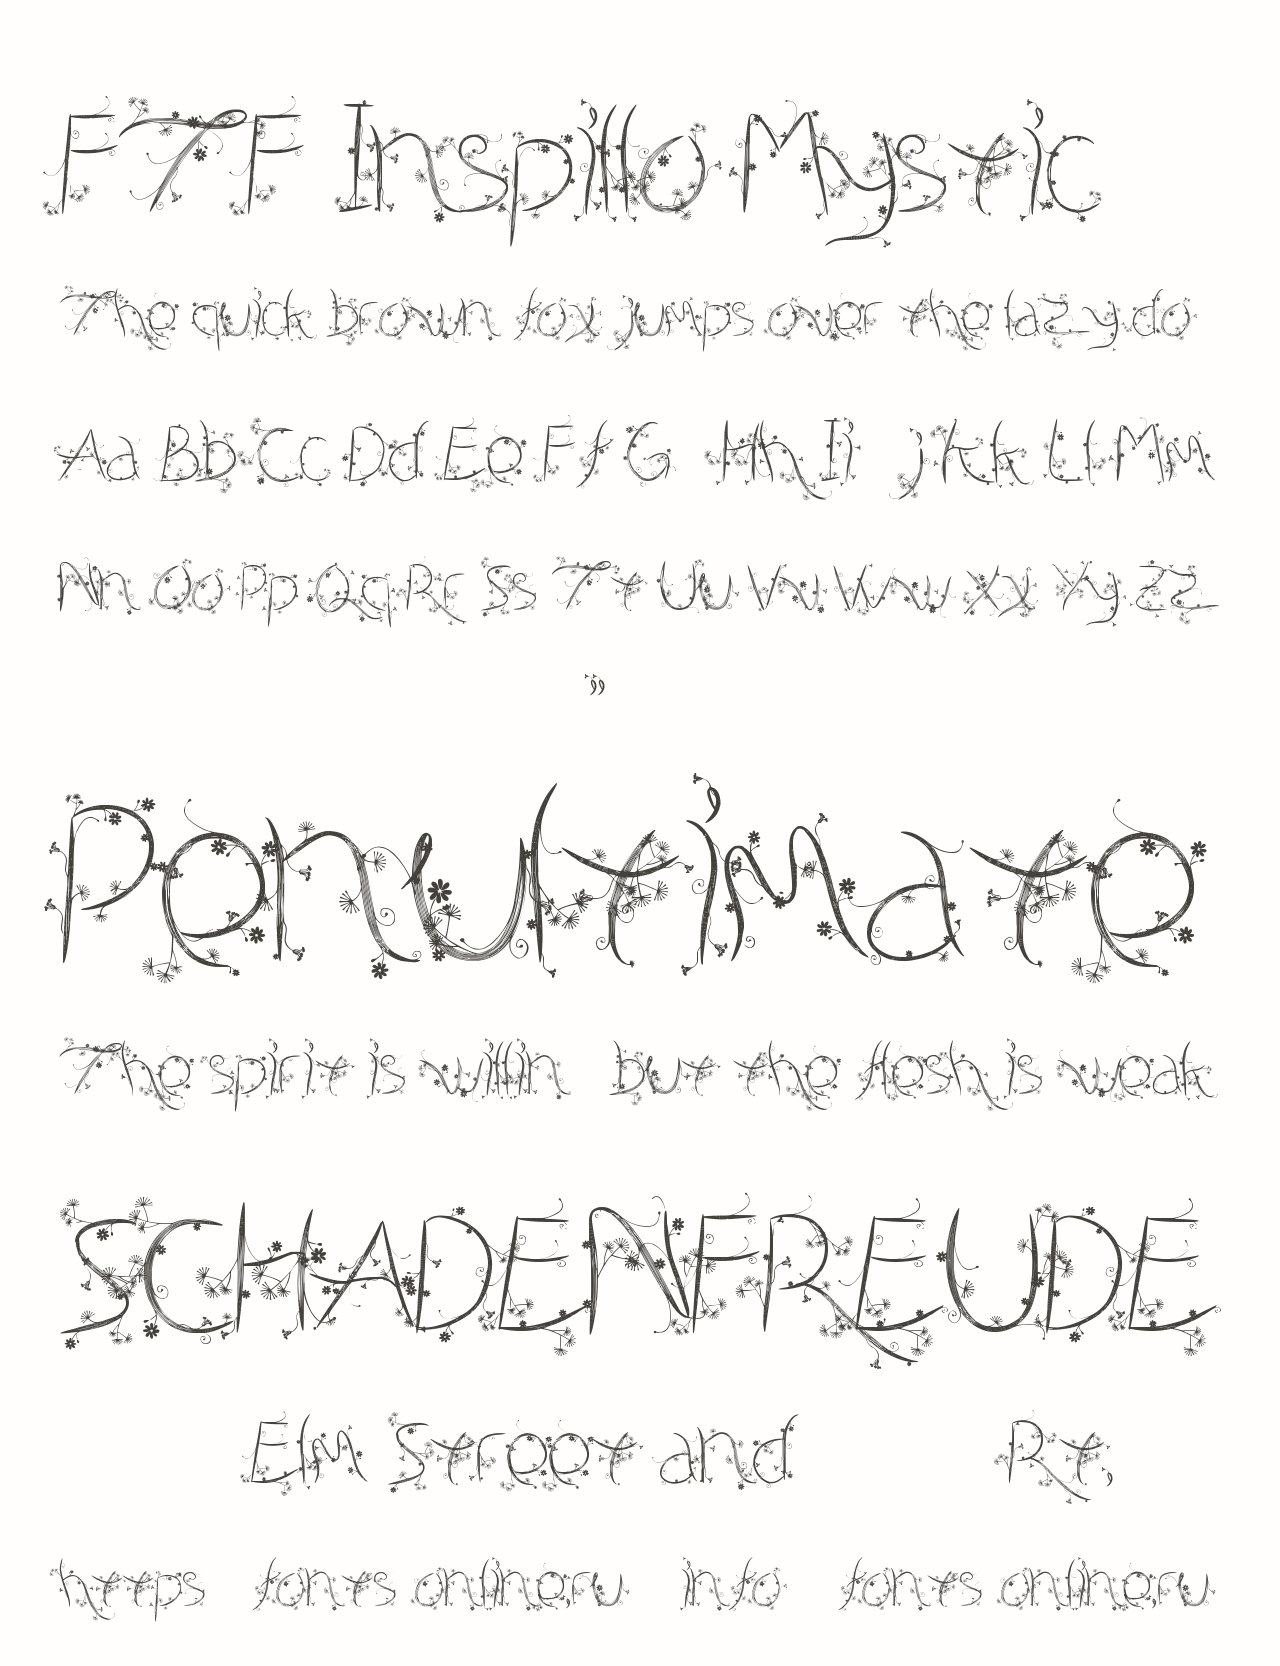 FTF Inspillo Mystic
The quick brown fox jumps over the lazy do
Aa Bb Cc Dd Ee Ff G Hh Ii j Kk Ll Mm
Nn Oo Pp Qq Rr Ss Tt Uu Vv Ww Xx Yy Zz
”
Penultimate
The spirit is willin but the flesh is weak
SCHADENFREUDE
Elm Street and Rt,
https fonts online,ru info fonts online,ru